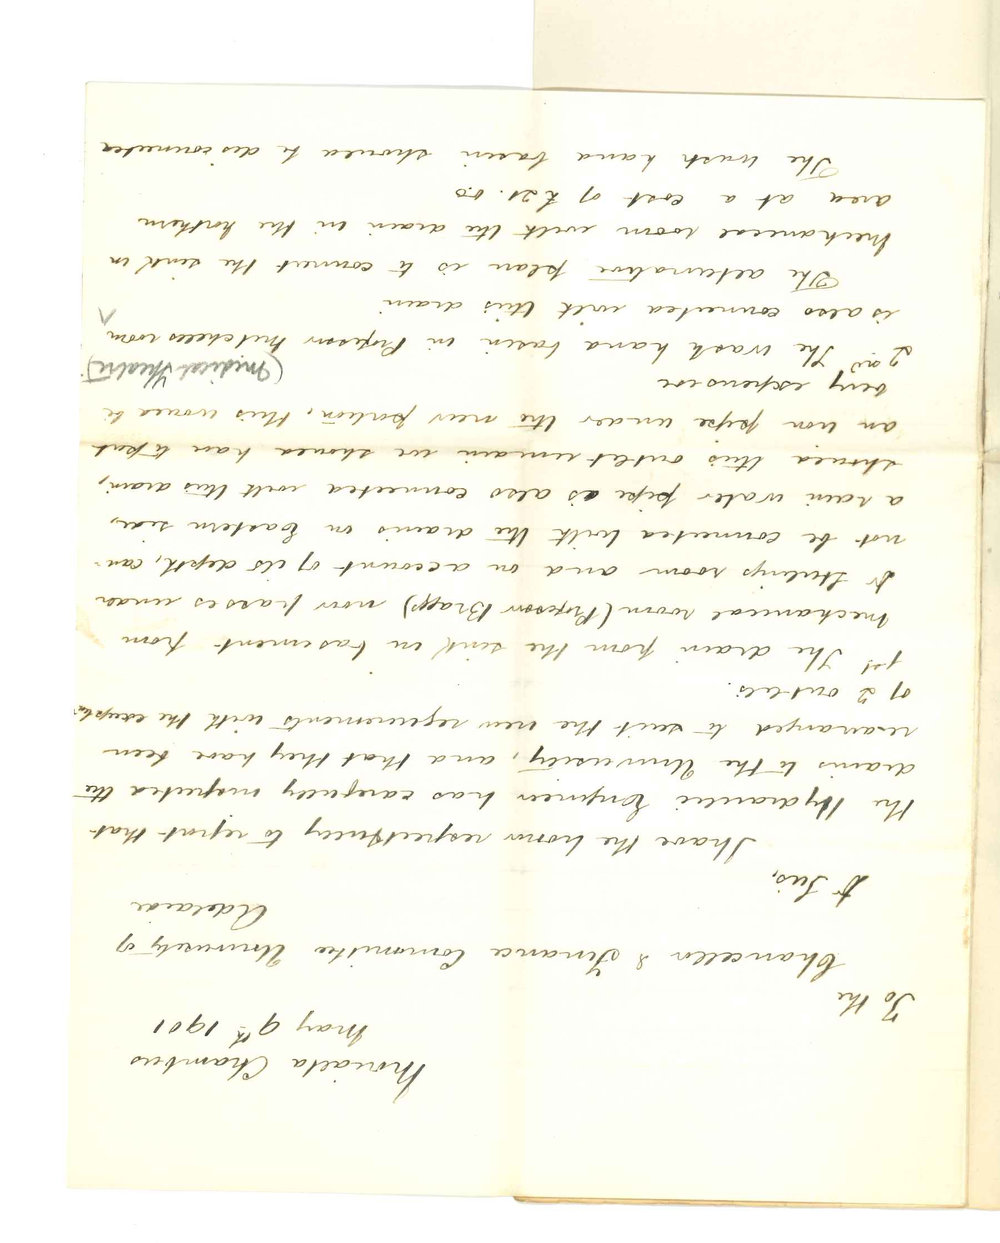 Morialta Chambers
May 9th 1901
To the
Chancellor & Finance Committee University of
Adelaide
Dr Sirs,
I have the honor respectfully to report that
the Hydraulic Engineer has carefully inspected the
drains to the University, and that they have been
rearranged to suit the new requirements with the exception
of 2 outlets.
1st The drain from the sink in basement from
Mechanical room (Professor Bragg) now passes under
Dr Stirlings room and on account of its depth, can-
not be connected with the drains on Eastern side,
a rain water pipe is also connected with this drain,
should this outlet remain we should have to put
an iron pipe under the new portion, this would be
very expensive
(Medical Theatre)
2nd The wash hand basin in Professor Mitchells room
is also connected with this drain
The alternative plan is to connect the sink in
Mechanical room with the drain in the Northern
area at a cost of £21.0.0
The wash hand basin should be disconnected